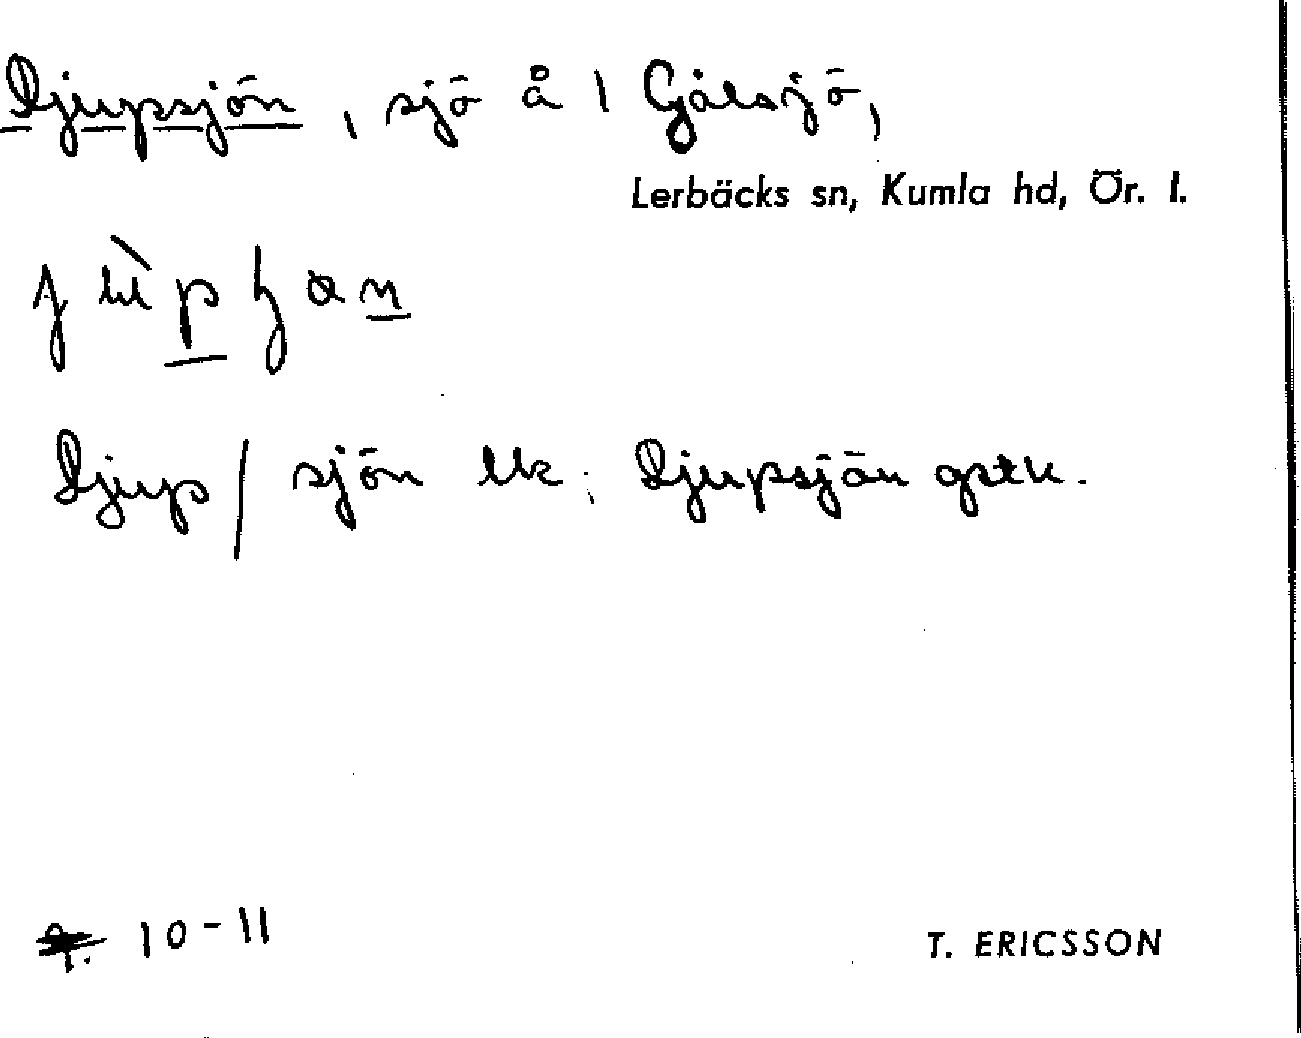 Djupsjön, sjö å 1 Gålsjö,
Lerbäcks sn, Kumla hd, Ör. l.
Djup/sjön llk; Djupsjön gstk.
10-11
T. ERICSSON